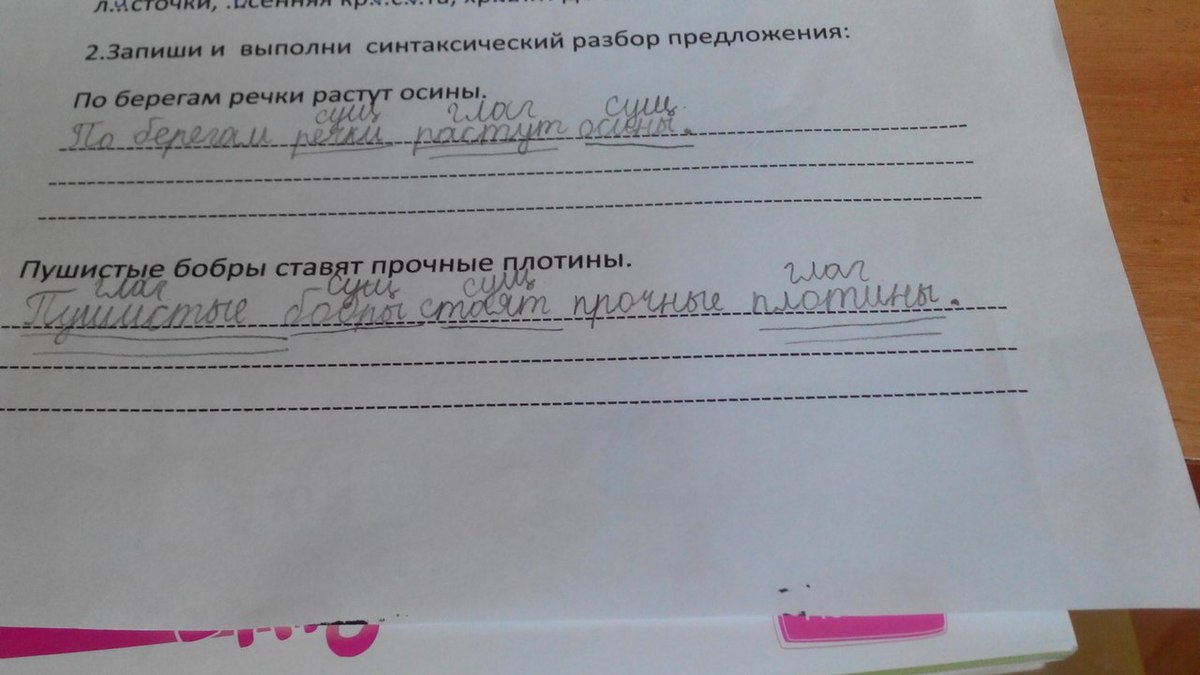 2.Запиши и выполни синтаксический разбор предложения:
По берегам речки растут осины.
сущ глаг сущ
По берегам речки растут осины.
Пушистые бобры ставят прочные плотины.
глаг сущ сущ глаг
Пушистые бобры стаят прочные плотины.